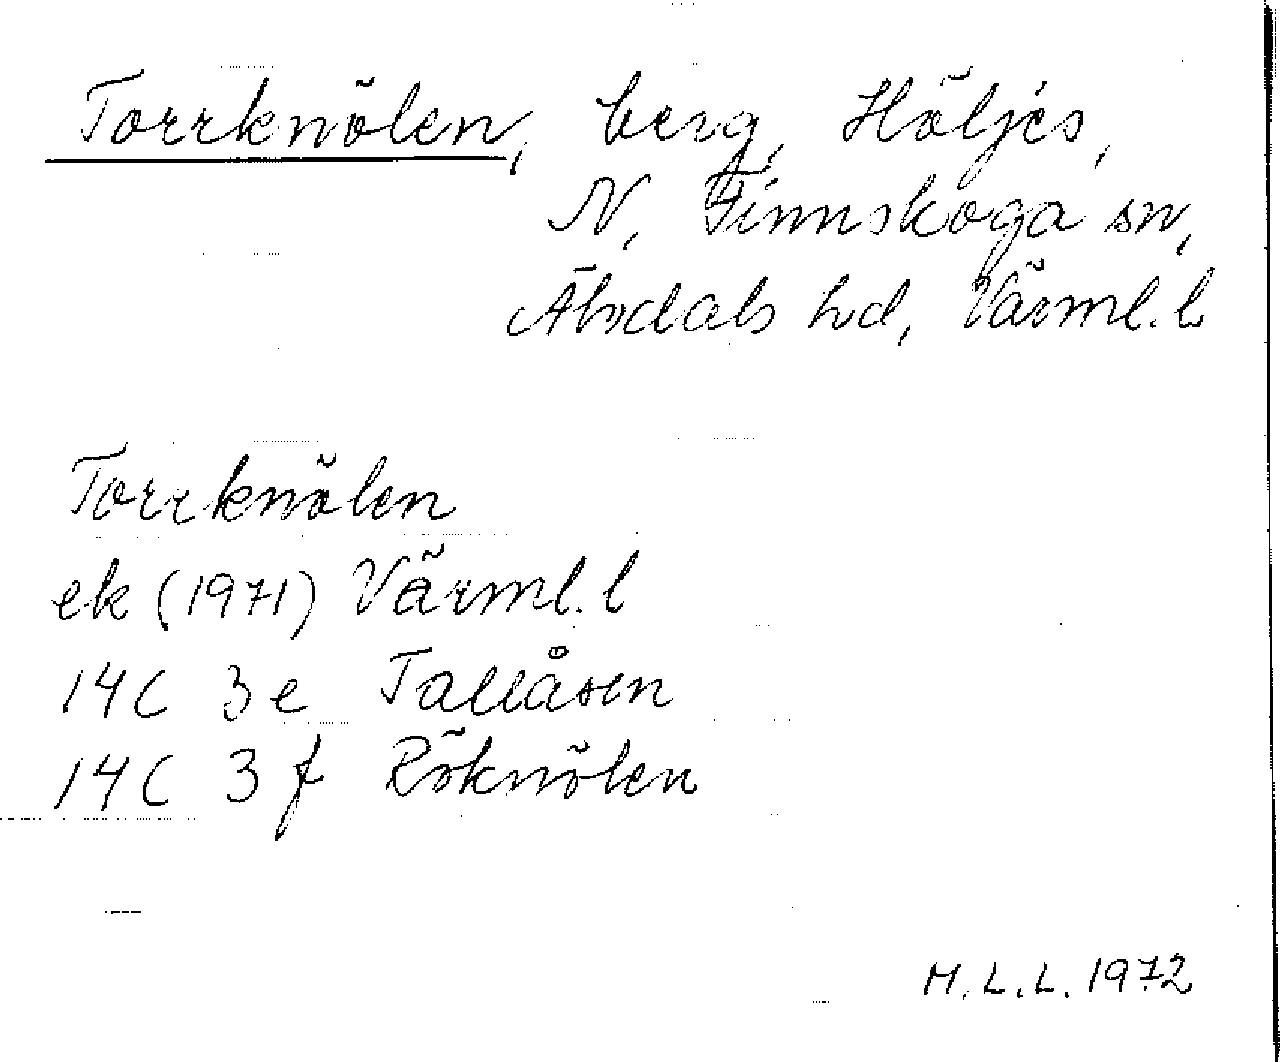 Torrknölen, berg, Höljes,
N, Finnskoga sn,
Älvdals hd, Värml. l.
Torrknölen
ek (1971) Värml. l
14C 3e Tallåsen
14C 3f Röknölen
M.L.L. 1972